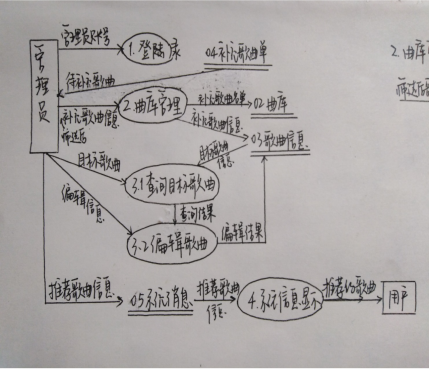 管理员
管理员账号
1.登陆录
04补充歌曲单
待补充歌曲
2.曲库管理
补充歌曲名单
02曲库
补充歌曲信息
筛选后
补充歌曲信息
03歌曲信息
目标歌曲
信息
目标歌曲
3.1查询目标歌曲
编辑信息
查询结果
3.2编辑歌曲
编辑结果
推荐歌曲信息
05系统消息
推荐歌曲
信息
4.系统信息显示
推荐的歌曲
用户
2.曲库
筛选后